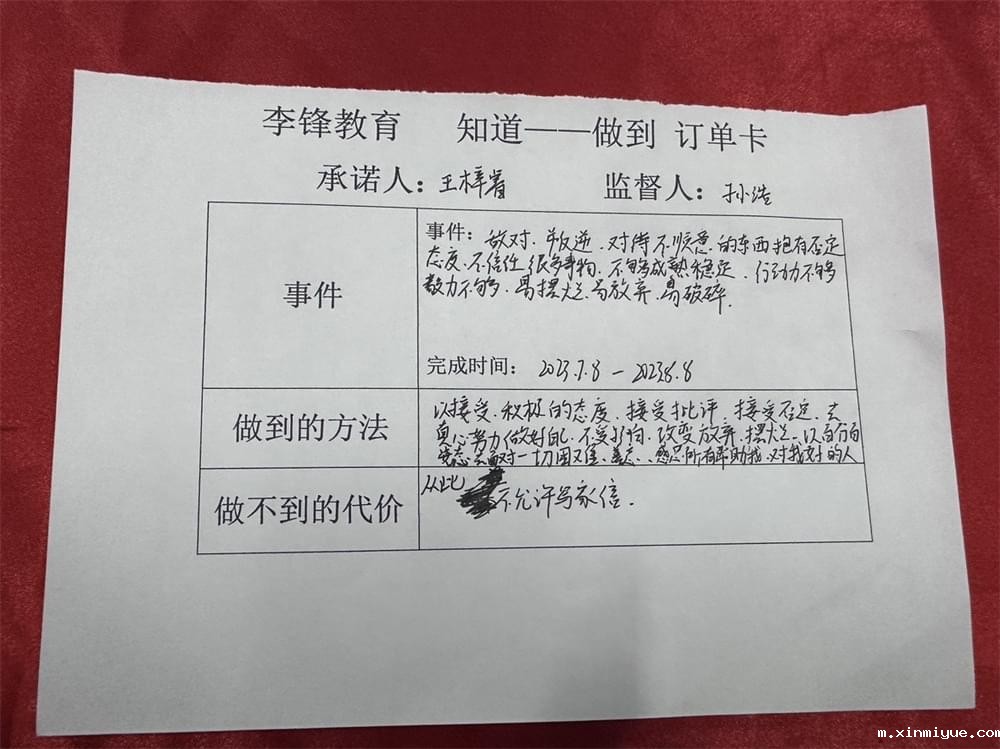 李锋教育 知道——做到 订单卡
承诺人：王梓睿 监督人：孙浩
事件
事件：敌对、叛逆、对待不顺意的东西抱有否定
态度、不信任很多事物、不够成熟稳定、行动力不够
毅力不够、易摆烂、易放弃、易破碎.
完成时间：2023.7.8 — 2023.8.8
做到的方法
以接受、积极的态度、接受批评、接受否定、去
真心努力做好自己、不受影响、改变放弃、摆烂、以百分百
态去面对一切困难、善恶、感恩所有帮助我、对我好的人
做不到的代价
从此 不允许写家信.
m.xinmiyue.com